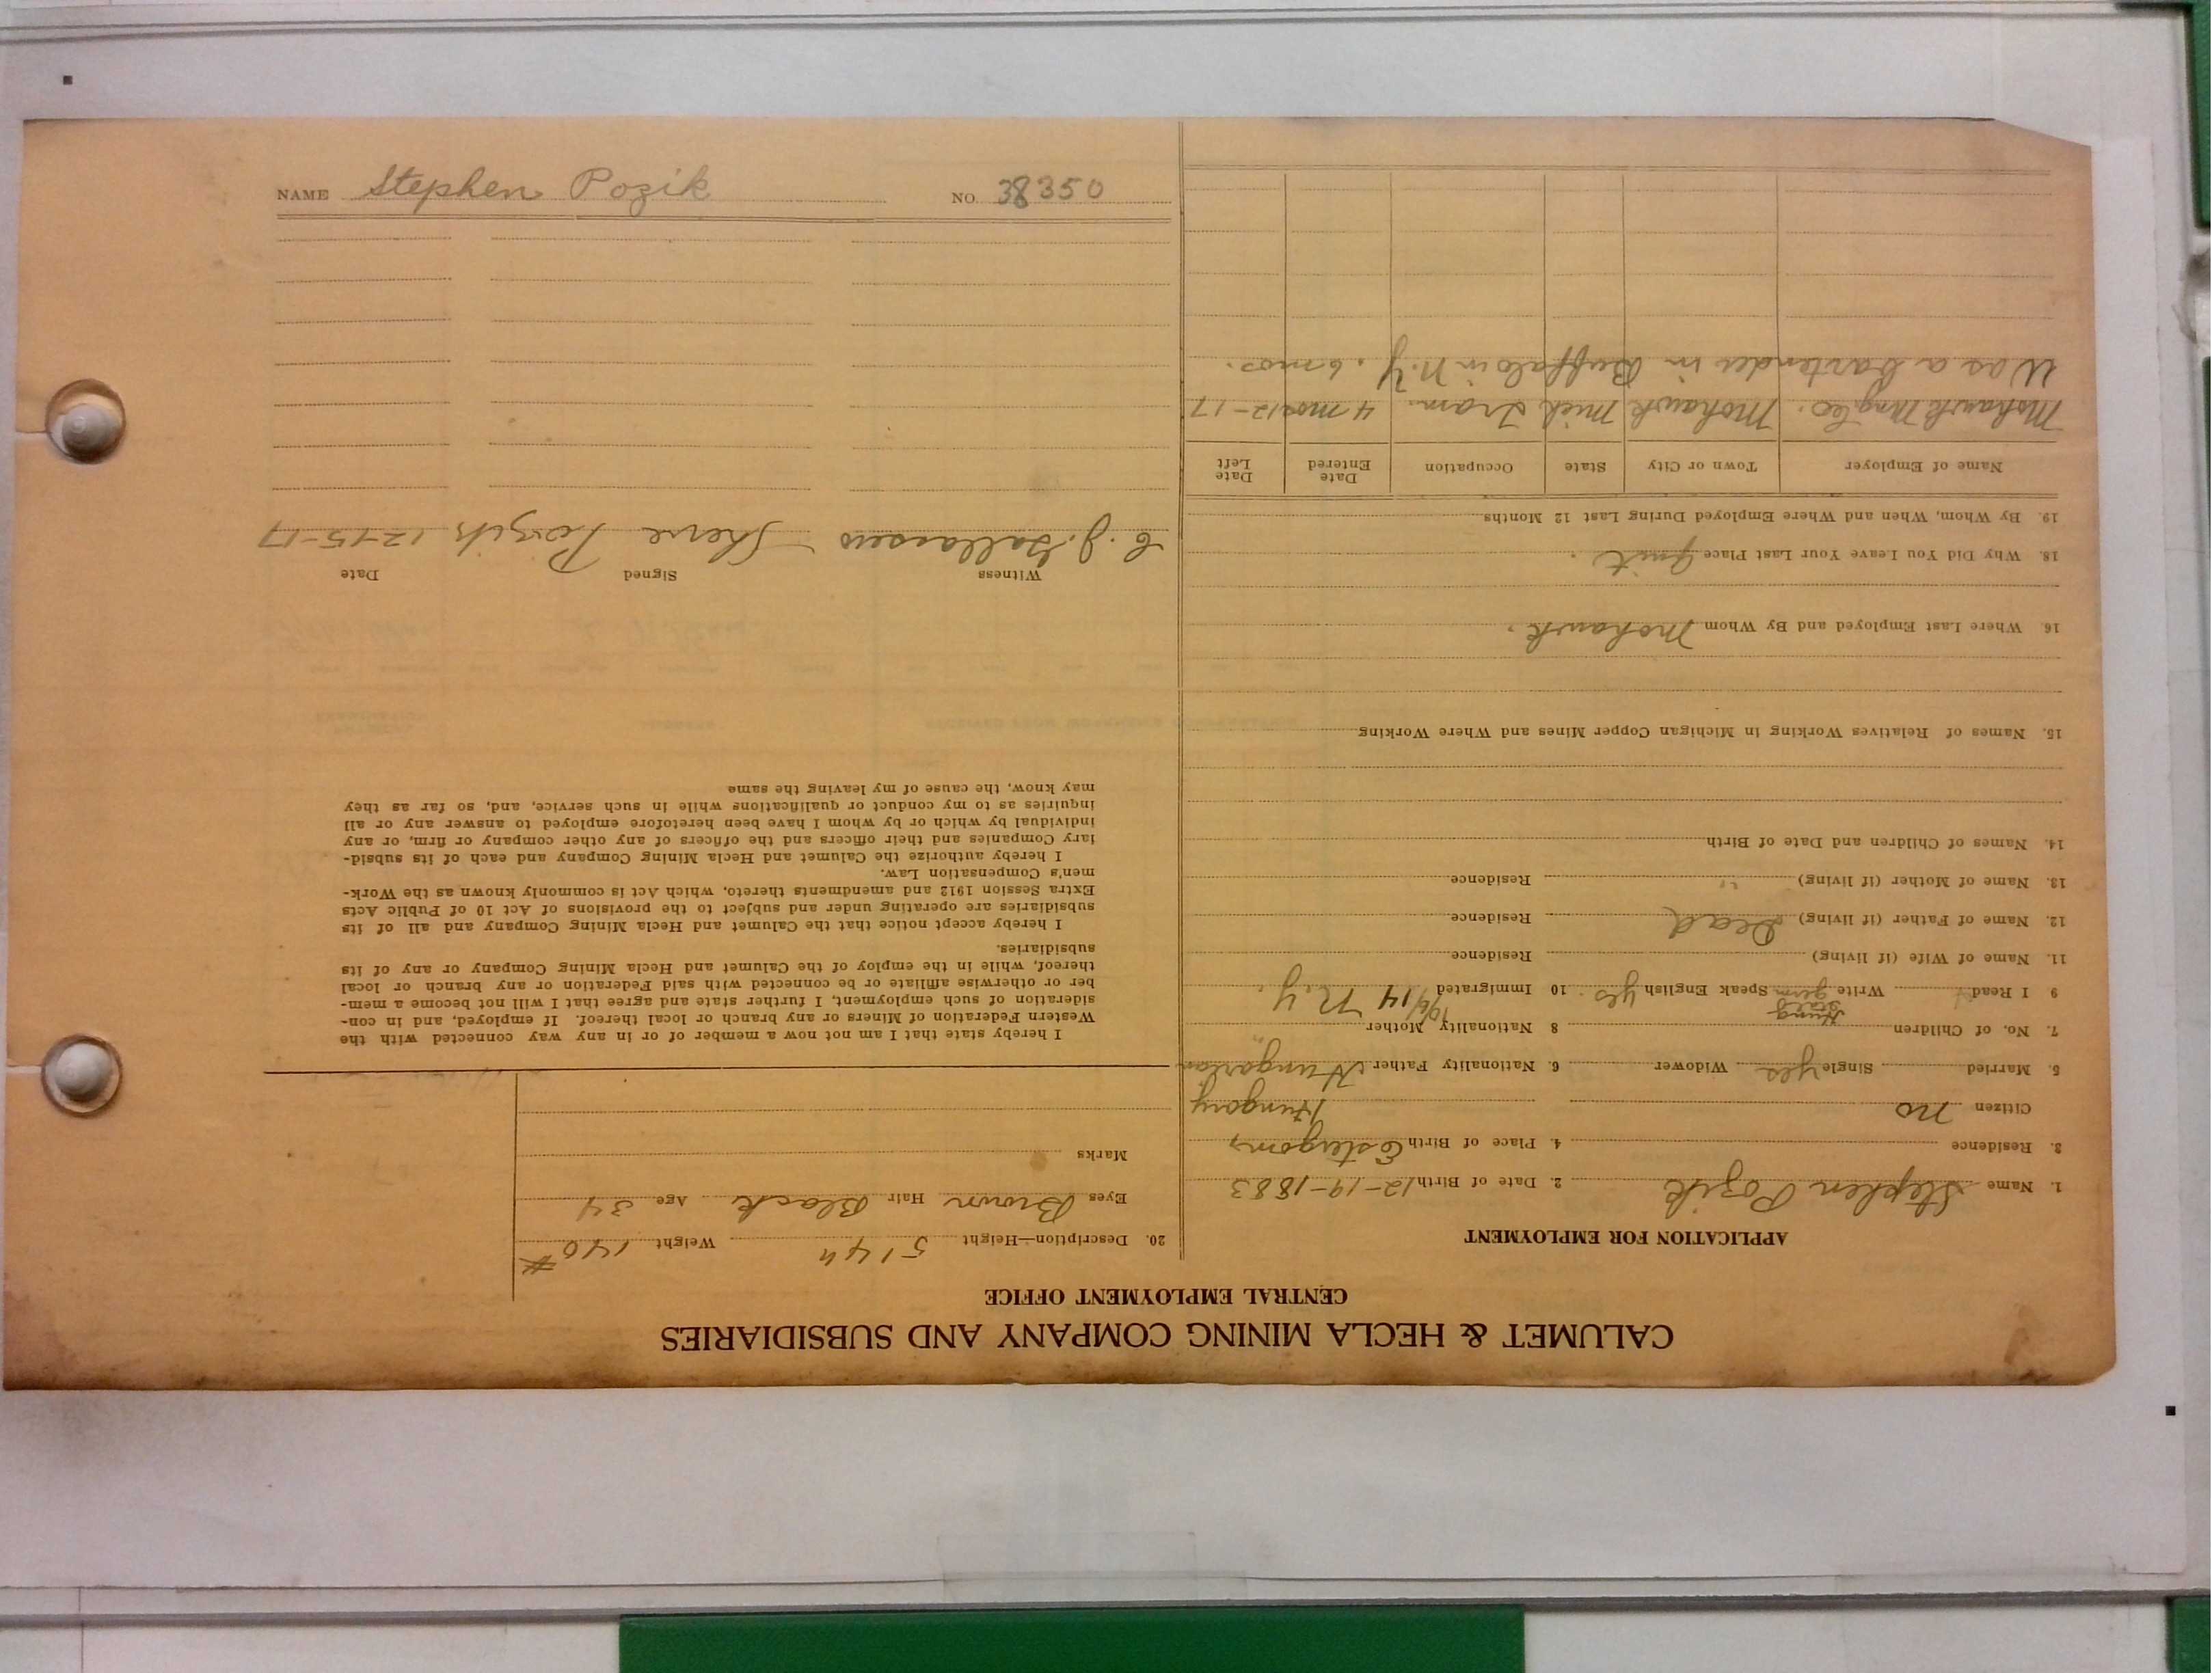 NAME Stephen Pozik NO. 38350
CALUMET & HECLA MINING COMPANY AND SUBSIDIARIES
CENTRAL EMPLOYMENT OFFICE
APPLICATION FOR EMPLOYMENT
1. Name Stephen Pozik 2. Date of Birth 12-19-1883
3. Residence 4. Place of Birth Estergom,
Citizen no Hungary
5. Married Single yes Widower 6. Nationality Father Hungarian
7. No. of Children 8 Nationality Mother "
9 I Read Write Hung Slav germ Speak English yes 10 Immigrated 10/6/14 N.Y.
11. Name of Wife (if living) Residence
12. Name of Father (if living) Dead Residence
13. Name of Mother (if living) " Residence
14. Names of Children and Date of Birth
15. Names of Relatives Working in Michigan Copper Mines and Where Working
16. Where Last Employed and By Whom Mohawk.
18. Why Did You Leave Your Last Place Quit.
19. By Whom, When and Where Employed During Last 12 Months
Name of Employer Town or City State Occupation Date Entered Date Left
Mohawk Mng Co. Mohawk Mich Tram. 4 mos 12-17
Was a bartender in Buffalo in N.Y. 6 mos.
20. Description—Height 5' 4 4 Weight 140 #
Eyes Brown Hair Black Age 34
Marks
I hereby state that I am not now a member of or in any way connected with the
Western Federation of Miners or any branch or local thereof. If employed, and in con-
sideration of such employment, I further state and agree that I will not become a mem-
ber or otherwise affiliate or be connected with said Federation or any branch or local
thereof, while in the employ of the Calumet and Hecla Mining Company or any of its
subsidiaries.
I hereby accept notice that the Calumet and Hecla Mining Company and all of its
subsidiaries are operating under and subject to the provisions of Act 10 of Public Acts
Extra Session 1912 and amendments thereto, which Act is commonly known as the Work-
men's Compensation Law.
I hereby authorize the Calumet and Hecla Mining Company and each of its subsid-
iary Companies and their officers and the officers of any other company or firm, or any
individual by which or by whom I have been heretofore employed to answer any or all
inquiries as to my conduct or qualifications while in such service, and, so far as they
may know, the cause of my leaving the same
Witness Signed Date
C. J. Pozik 12-15-17